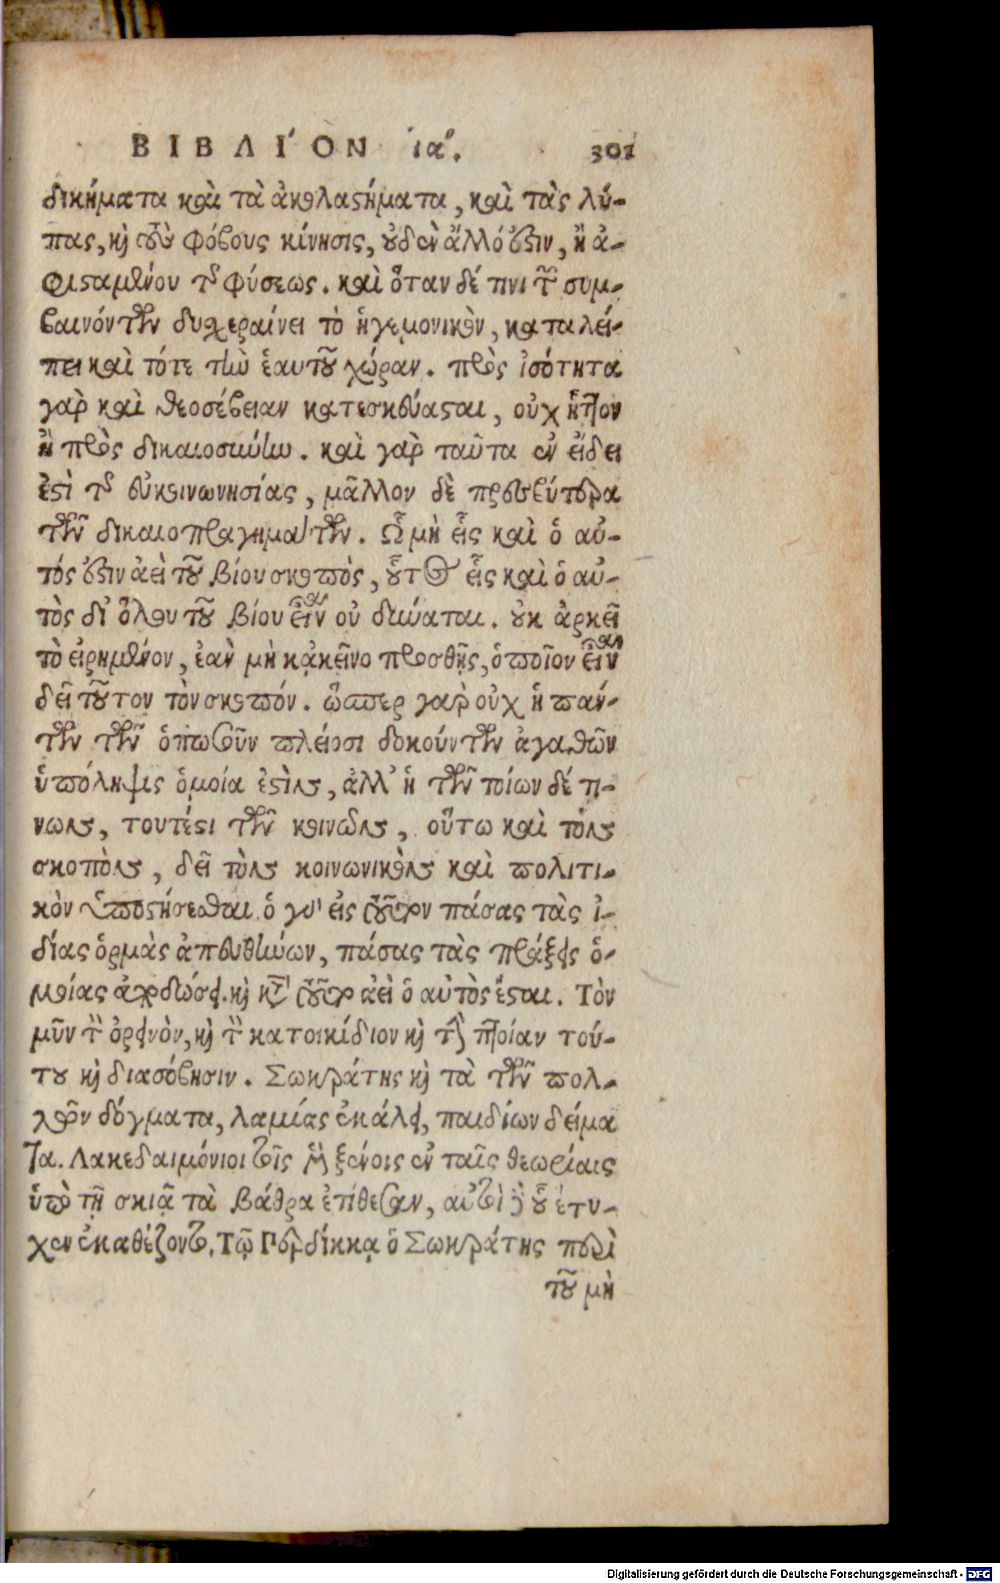 ΒΙΒΛΊΟΝ ιαʹ. 301
δικήματα καὶ τὰ ἀκολαστήματα, καὶ τὰς λύ-
πας, καὶ τοὺς φόβους κίνησις, οὐδὲν ἄλλό ἐστιν, ἢ ἀ-
φισταμένου τῆς φύσεως. καὶ ὅταν δέ τινι τῶν συμ-
βαινόντων δυσχεραίνει τὸ ἡγεμονικὸν, καταλεί-
πει καὶ τότε τὴν ἑαυτοῦ χώραν. πρὸς ἰσότητα
γὰρ καὶ θεοσέβειαν κατεσκεύασται, οὐχ ἧττον
ἢ πρὸς δικαιοσύνην. καὶ γὰρ ταῦτα ἐν εἴδει
ἐστὶ τῆς εὐκοινωνησίας, μᾶλλον δὲ πρεσβύτερα
τῶν δικαιοπραγημάτων. Ὧ μὴ εἷς καὶ ὁ αὐ-
τός ἐστιν ἀεὶ τοῦ βίου σκοπὸς, οὗτος εἷς καὶ ὁ αὐ-
τὸς δι' ὅλου τοῦ βίου εἶναι οὐ δύναται. οὐκ ἀρκεῖ
τὸ εἰρημένον, ἐὰν μὴ κᾀκεῖνο προσθῇς, ὁποῖον εἶναι
δεῖ τοῦτον τὸν σκοπόν. ὥσπερ γὰρ οὐχ ἡ πάν-
των τῶν ὁπωσοῦν πλείοσι δοκούντων ἀγαθῶν
ὑπόληψις ὁμοία ἐστὶν, ἀλλ' ἡ τῶν τοίων δέ τι-
νων, τουτέστι τῶν κοινῶν, οὕτω καὶ τὸν
σκοπὸν, δεῖ τὸν κοινωνικὸν καὶ πολιτι-
κὸν ὑποστήσεσθαι. ὁ γὰρ εἰς τοῦτον πάσας τὰς ἰ-
δίας ὁρμὰς ἀπευθύνων, πάσας τὰς πράξεις ὁ-
μοίας ἀποδώσει. καὶ κατὰ τοῦτο ἀεὶ ὁ αὐτὸς ἔσται. Τὸν
μῦν τὸν ὀρεινὸν, καὶ τὸν κατοικίδιον καὶ τὴν πτοίαν τού-
του καὶ διασόβησιν. Σωκράτης καὶ τὰ τῶν πολ-
λῶν δόγματα, λαμίας ἐκάλει, παιδίων δείμα
τα. Λακεδαιμόνιοι τοῖς μὲν ξένοις ἐν ταῖς θεωρίαις
ὑπὸ τῇ σκιᾷ τὰ βάθρα ἐτίθεσαν, αὐτοὶ δὲ οὗ ἔτυ-
χεν ἐκαθέζοντο. Τῷ Περδίκκᾳ ὁ Σωκράτης περὶ
τοῦ μὴ
Digitalisierung gefördert durch die Deutsche Forschungsgemeinschaft - DFG